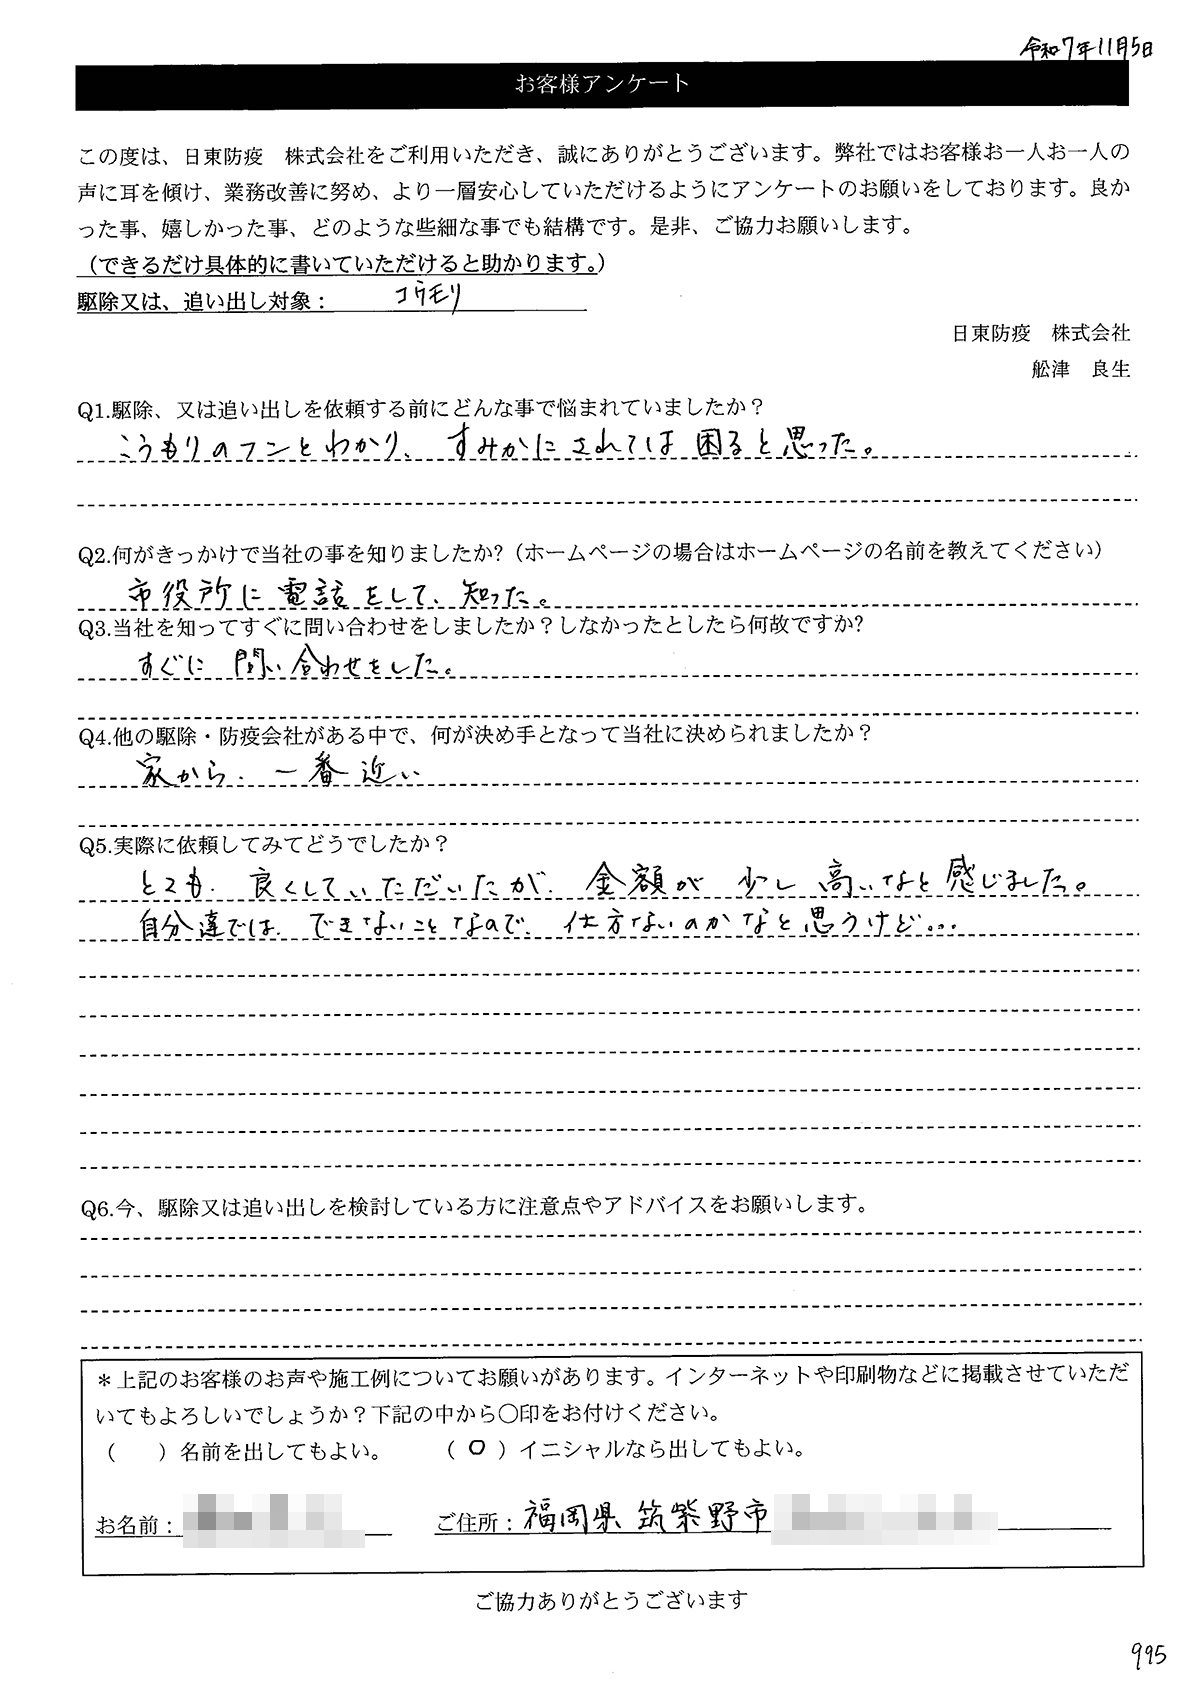 令和7年11月5日
お客様アンケート
この度は、日東防疫　株式会社をご利用いただき、誠にありがとうございます。弊社ではお客様お一人お一人の
声に耳を傾け、業務改善に努め、より一層安心していただけるようにアンケートのお願いをしております。良か
った事、嬉しかった事、どのような些細な事でも結構です。是非、ご協力お願いします。
（できるだけ具体的に書いていただけると助かります。）
駆除又は、追い出し対象： コウモリ
日東防疫　株式会社
舩津　良生
Q1.駆除、又は追い出しを依頼する前にどんな事で悩まれていましたか？
こうもりのフンとわかり、すみかにされては困ると思った。
Q2.何がきっかけで当社の事を知りましたか?（ホームページの場合はホームページの名前を教えてください）
市役所に電話をして、知った。
Q3.当社を知ってすぐに問い合わせをしましたか？しなかったとしたら何故ですか?
すぐに問い合わせをした。
Q4.他の駆除・防疫会社がある中で、何が決め手となって当社に決められましたか？
家から、一番近い
Q5.実際に依頼してみてどうでしたか？
とても、良くしていただいたが、金額が少し高いなと感じました。
自分達では、できないことなので、仕方ないのかなと思うけど…
Q6.今、駆除又は追い出しを検討している方に注意点やアドバイスをお願いします。
＊上記のお客様のお声や施工例についてお願いがあります。インターネットや印刷物などに掲載させていただ
いてもよろしいでしょうか？下記の中から〇印をお付けください。
（　　）名前を出してもよい。　　（ O ）イニシャルなら出してもよい。
お名前：　　ご住所：福岡県筑紫野市
ご協力ありがとうございます
995